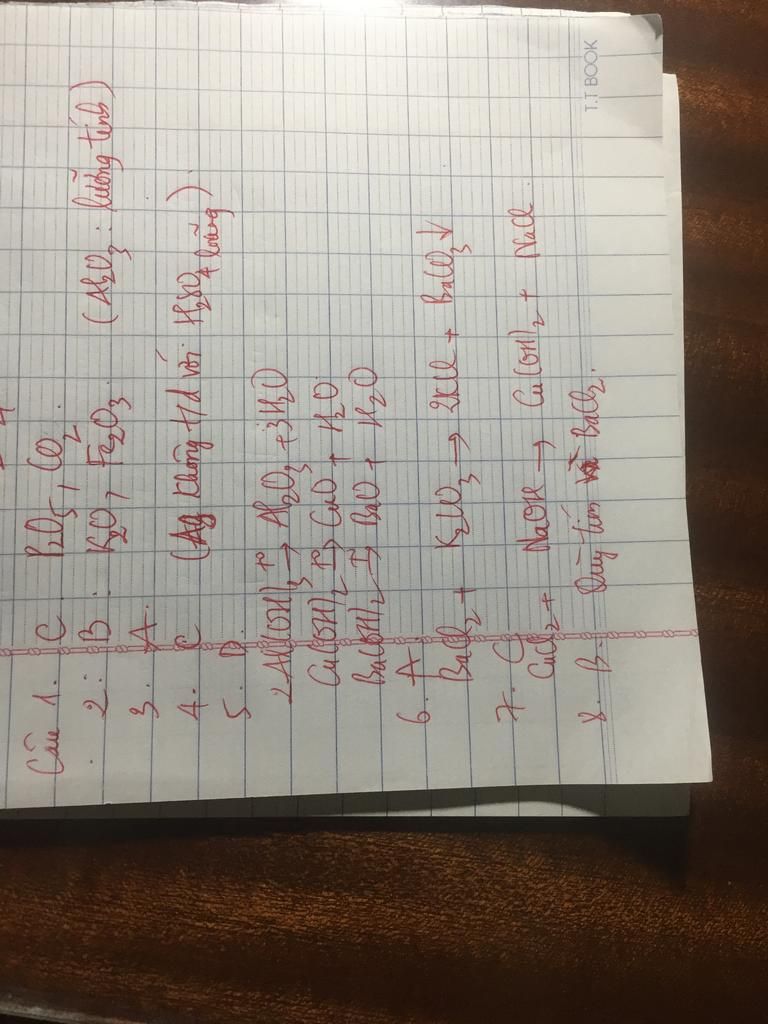 Câu 1. C P₂O₅, CO₂.
2. B. K₂O, Fe₂O₃. (Al₂O₃: lưỡng tính)
3. A.
4. C (Ag không t/d với H₂SO₄ loãng)
5. D.
2Al(OH)₃ →t° Al₂O₃ + 3H₂O
Cu(OH)₂ →t° CuO + H₂O
Ba(OH)₂ →t° BaO + H₂O
6. A.
BaCl₂ + K₂CO₃ → 2KCl + BaCO₃↓
7. C
CuCl₂ + NaOH → Cu(OH)₂ + NaCl.
8. B. Quỳ tím BaCl₂.
T.T BOOK